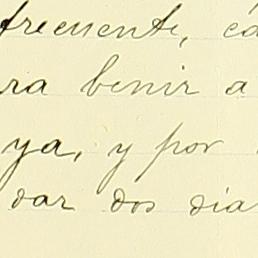 frecuente, ca
ra benir a
ya, y por
dar dos dia